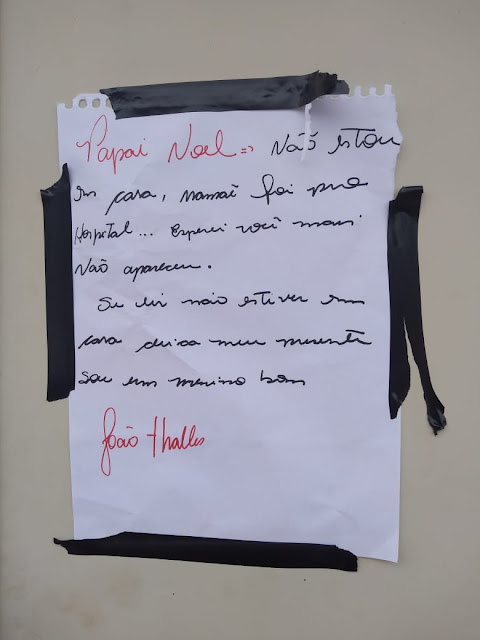 Papai Noel => Não estou
em casa, mamãe foi pro
Hospital... Esperei você mais
Não apareceu.
Se eu não estiver em
casa deixa meu presente
Sou um menino bom
João thalles